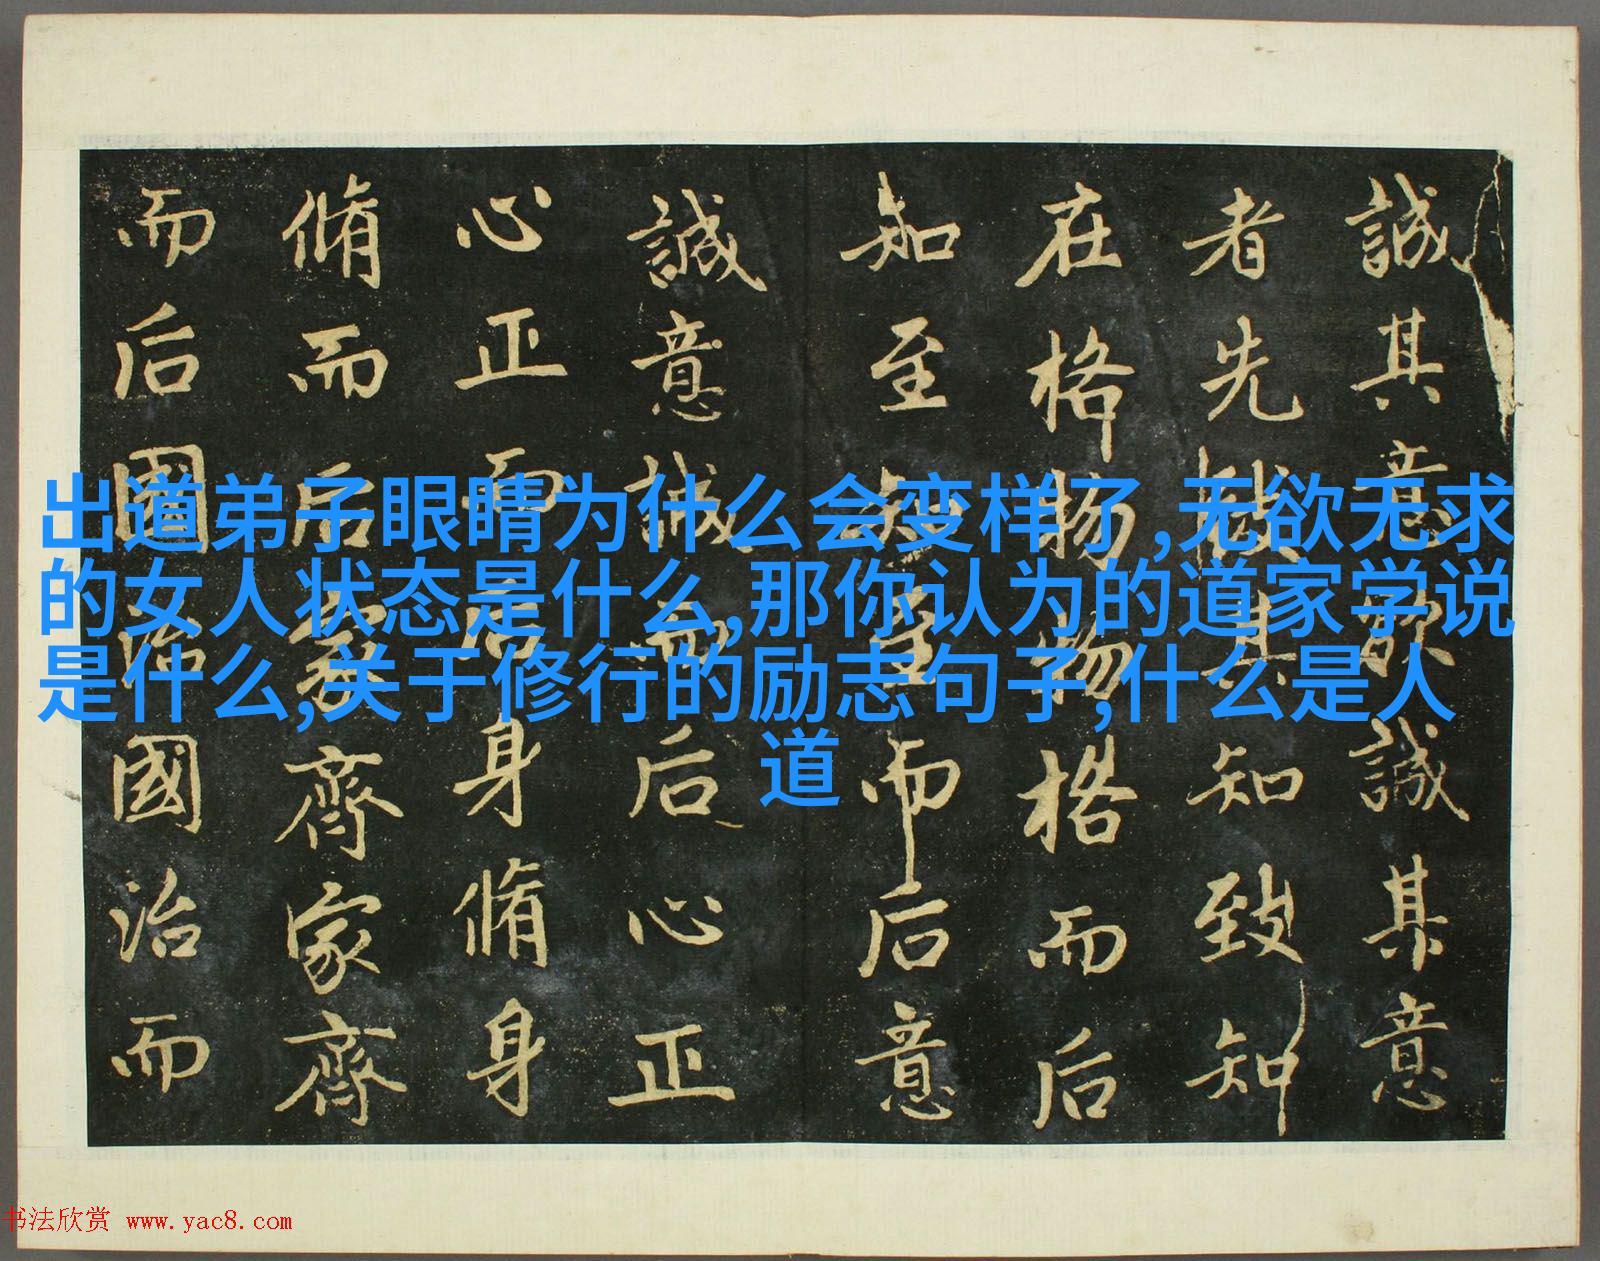 誠其意欲誠其意
者先致其知致知
在格物物格而后
知至知至而后意
誠意誠而后心正
心正而后身脩身
脩而后家齊家齊
而后國治國治而
出道弟子眼睛为什么会变样了,无欲无求
的女人状态是什么,那你认为的道家学说
是什么,关于修行的励志句子,什么是人
道
书法欣赏 www.yac8.com